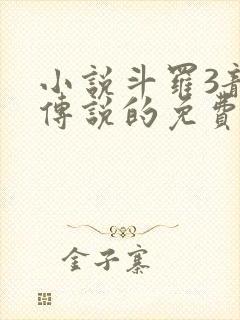 小說斗羅3
傳說的免費
金子寨